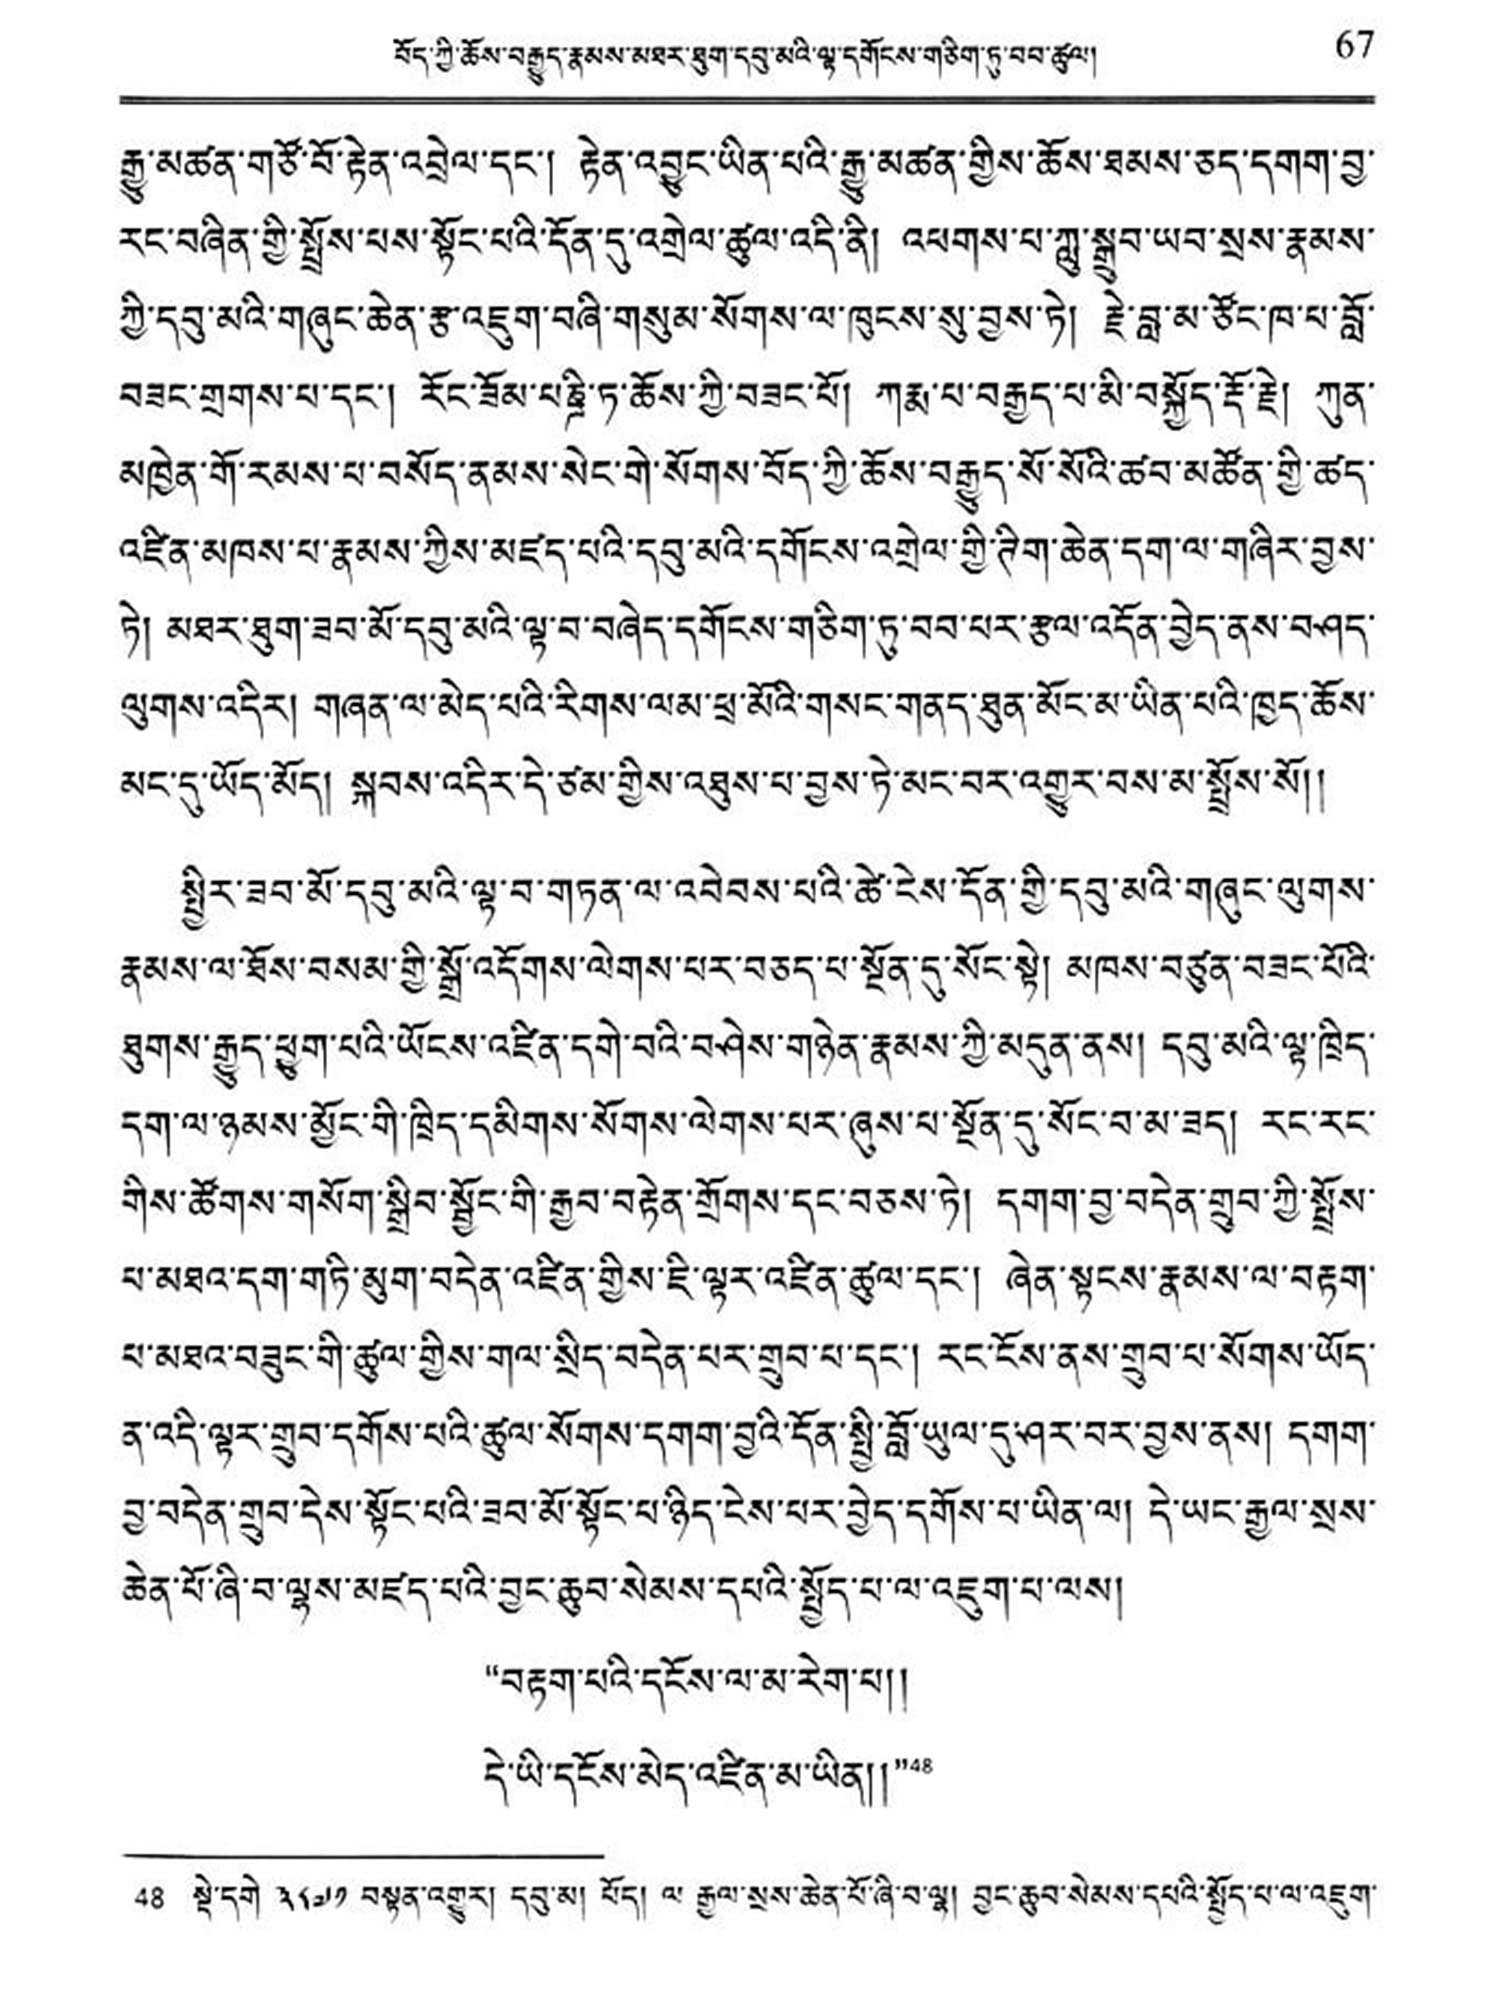 བོད་ཀྱི་ཆོས་བརྒྱུད་རྣམས་མཐར་ཐུག་དབུ་མའི་ལྟ་དགོངས་གཅིག་ཏུ་བབ་ཚུལ།
67
རྒྱུ་མཚན་གཙོ་བོ་རྟེན་འབྲེལ་དང་། རྟེན་འབྱུང་ཡིན་པའི་རྒྱུ་མཚན་གྱིས་ཆོས་ཐམས་ཅད་དགག་བྱ་
རང་བཞིན་གྱི་སྤྲོས་པས་སྟོང་པའི་དོན་དུ་འགྲེལ་ཚུལ་འདི་ནི། འཕགས་པ་ཀླུ་སྒྲུབ་ཡབ་སྲས་རྣམས་
ཀྱི་དབུ་མའི་གཞུང་ཆེན་རྩ་འཇུག་བཞི་གསུམ་སོགས་ལ་ཁུངས་སུ་བྱས་ཏེ། རྗེ་བླ་མ་ཙོང་ཁ་པ་བློ་
བཟང་གྲགས་པ་དང་། རོང་ཟོམ་པཎྜི་ཏ་ཆོས་ཀྱི་བཟང་པོ། ཀརྨ་པ་བརྒྱད་པ་མི་བསྐྱོད་རྡོ་རྗེ། ཀུན་
མཁྱེན་གོ་རམས་པ་བསོད་ནམས་སེང་གེ་སོགས་བོད་ཀྱི་ཆོས་བརྒྱུད་སོ་སོའི་ཚབ་མཚོན་གྱི་ཚད་
འཛིན་མཁས་པ་རྣམས་ཀྱིས་མཛད་པའི་དབུ་མའི་དགོངས་འགྲེལ་གྱི་ཊཱིག་ཆེན་དག་ལ་གཞིར་བྱས་
ཏེ། མཐར་ཐུག་ཟབ་མོ་དབུ་མའི་ལྟ་བ་བཞེད་དགོངས་གཅིག་ཏུ་བབ་པར་རྩལ་འདོན་བྱེད་ནས་བཤད་
ལུགས་འདིར། གཞན་ལ་མེད་པའི་རིགས་ལམ་ཕྲ་མོའི་གསང་གནད་ཐུན་མོང་མ་ཡིན་པའི་ཁྱད་ཆོས་
མང་དུ་ཡོད་མོད། སྐབས་འདིར་དེ་ཙམ་གྱིས་འཐུས་པ་བྱས་ཏེ་མང་བར་འགྱུར་བས་མ་སྤྲོས་སོ།།
སྤྱིར་ཟབ་མོ་དབུ་མའི་ལྟ་བ་གཏན་ལ་འབེབས་པའི་ཚེ་ངེས་དོན་གྱི་དབུ་མའི་གཞུང་ལུགས་
རྣམས་ལ་ཐོས་བསམ་གྱི་སྒྲོ་འདོགས་ལེགས་པར་བཅད་པ་སྔོན་དུ་སོང་སྟེ། མཁས་བཙུན་བཟང་པོའི་
ཐུགས་རྒྱུད་ཕྱུག་པའི་ཡོངས་འཛིན་དགེ་བའི་བཤེས་གཉེན་རྣམས་ཀྱི་མདུན་ནས། དབུ་མའི་ལྟ་ཁྲིད་
དག་ལ་ཉམས་མྱོང་གི་ཁྲིད་དམིགས་སོགས་ལེགས་པར་ཞུས་པ་སྔོན་དུ་སོང་བ་མ་ཟད། རང་རང་
གིས་ཚོགས་གསོག་སྒྲིབ་སྦྱོང་གི་རྒྱབ་བརྟེན་གྲོགས་དང་བཅས་ཏེ། དགག་བྱ་བདེན་གྲུབ་ཀྱི་སྤྲོས་
པ་མཐའ་དག་གཏི་མུག་བདེན་འཛིན་གྱིས་ཇི་ལྟར་འཛིན་ཚུལ་དང་། ཞེན་སྟངས་རྣམས་ལ་བརྟག་
པ་མཐའ་བཟུང་གི་ཚུལ་གྱིས་གལ་སྲིད་བདེན་པར་གྲུབ་པ་དང་། རང་ངོས་ནས་གྲུབ་པ་སོགས་ཡོད་
ན་འདི་ལྟར་གྲུབ་དགོས་པའི་ཚུལ་སོགས་དགག་བྱའི་དོན་སྤྱི་བློ་ཡུལ་དུ་ཤར་བར་བྱས་ནས། དགག་
བྱ་བདེན་གྲུབ་དེས་སྟོང་པའི་ཟབ་མོ་སྟོང་པ་ཉིད་ངེས་པར་བྱེད་དགོས་པ་ཡིན་ལ། དེ་ཡང་རྒྱལ་སྲས་
ཆེན་པོ་ཞི་བ་ལྷས་མཛད་པའི་བྱང་ཆུབ་སེམས་དཔའི་སྤྱོད་པ་ལ་འཇུག་པ་ལས།
“བརྟག་པའི་དངོས་ལ་མ་རེག་པ།།
དེ་ཡི་དངོས་མེད་འཛིན་མ་ཡིན།།”48
48 སྡེ་དགེ ༣༨༧༡ བསྟན་འགྱུར། དབུ་མ། པོད། ལ རྒྱལ་སྲས་ཆེན་པོ་ཞི་བ་ལྷ། བྱང་ཆུབ་སེམས་དཔའི་སྤྱོད་པ་ལ་འཇུག་